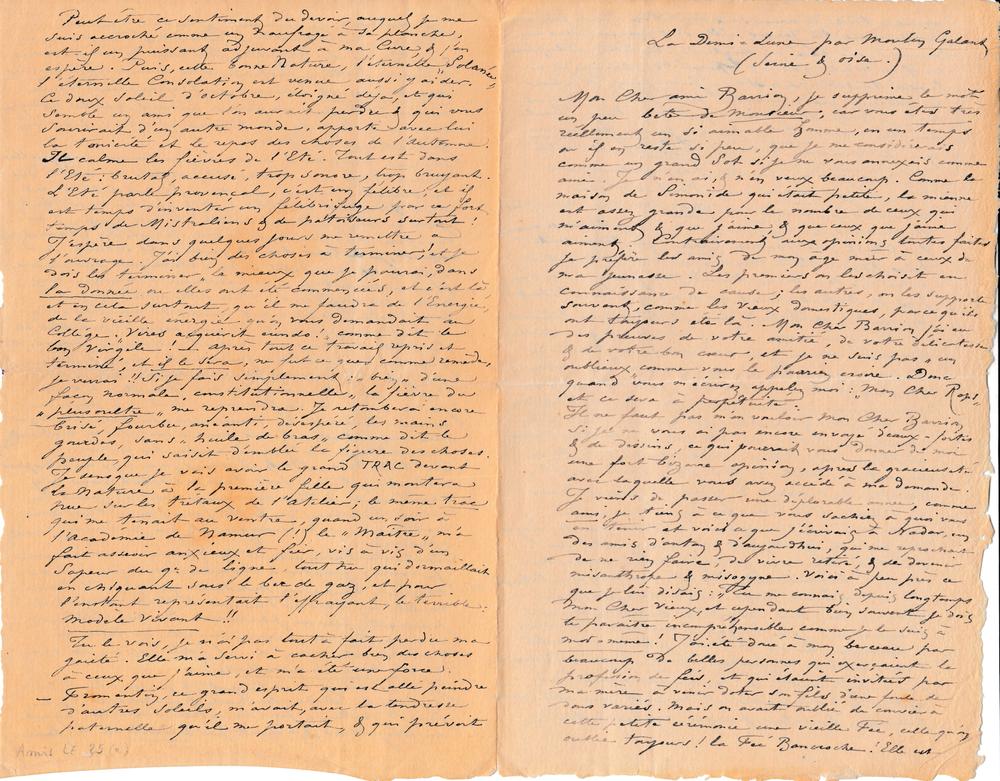 Peut être ce sentiment du devoir, auquel je me
suis accroché comme un naufragé à sa planche,
est-il un puissant adjuvant à ma Cure & j'en
espère. Puis, cette bonne Nature, l'éternelle
l'éternelle Consolation est venue aussi y aider.
Ce doux soleil d'octobre, éloigné déjà, et qui
semble un ami que l'on aurait perdu & qui vous
sourirait d'un autre monde, apporte avec lui
la tonicité et le repos des choses de l'automne.
Il calme les fièvres de l'Eté. Tout est dans
l'Eté: brutal, accusé, trop sonore, trop bruyant.
L'Eté parle provençal, c'est un félibre, et il
est temps d'inventer un félibrifuge par ce
temps de Mistraliens & de patoiseurs surtout!
J'espère dans quelques jours me remettre à
l'ouvrage. J'ai bien des choses à terminer, et je
dois les terminer le mieux que je pourrai, dans
la donnée où elles ont été commencées, et c'est là
et en cela surtout, qu'il me faudra de l'Energie,
de la vieille énergie qu'on vous demandait au
Collège. "Vires acquirit eundo"! comme dit le
bon Virgile! Après tout ce travail repris et
terminé, et il le sera, ne fut ce que comme remède,
je verrai!! Si je fais simplement „bien" d'une
façon normale, constitutionnelle, la fièvre du
„plus oultre" me reprendra. Je retomberai encore
brisé, fourbu, anéanti, désespéré, les mains
gourdes, sans „huile de bras" comme dit le
peuple, qui saisit d'emblée la figure des choses.
Je sens que je vais avoir le grand TRAC devant
la Nature à la première fille qui montera
nue sur les tréteaux de l'atelier; le même trac
qui me tenait au ventre, quand un soir à
l'Academie de Namur (!) le „Maître" m'a
fait asseoir anxieux et fier, vis à vis d'un
Sapeur du de ligne, tout nu qui dormaillait
en chiquant sous le bec de gaz, et pour
l'instant représentait l'effrayant, le terrible:
modèle vivant!!
Tu le vois, je n'ai pas tout à fait perdu ma
gaieté. Elle m'a servi à cacher bien des choses
à ceux que j'aime, et m'a été une force.
Fromentin, ce grand esprit qui est allé peindre
d'autres soleils, m'avait, avec la tendresse
paternelle qu'il me portait, & qui prévoit
Amis LE 25 (a)
La Demi-Lune par Moulin Galant
(Seine & oise.)
Mon Cher ami Barrion, je supprime le mot
un peu bête de Monsieur, car vous êtes très
réellement un si aimable homme, en un temps
où il en reste si peu, que je me considèrerais
comme un grand Sot si je ne vous annexais comme
ami. Je n'en ai, & n'en veux beaucoup. Comme la
maison de Simonide qui était petite, la mienne
est assez grande pour le nombre de ceux qui
m'aiment & que j'aime & que ceux que j'aime
aiment. Contrairement aux opinions toutes faites
je préfère les amis de mon age mûr à ceux de
ma jeunesse. Les premiers on les choisit en
connaissance de cause; les autres, on les supporte
souvent, comme les vieux domestiques, parce qu'ils
ont toujours été là. Mon Cher Barrion, j'ai eu
des preuves de votre amitié, de votre délicatesse
& de votre bon cœur, et je ne suis pas „un
oublieux" comme vous le pourriez croire. Donc
quand vous m'écrivez appelez moi: „Mon Cher Rops"
et ce sera à perpétuité.
Il ne faut pas m'en vouloir Mon Cher Barrion
si je ne vous ai pas encore envoyé d'eaux-fortes
& de dessins, ce qui pourrait vous donner de moi
une fort bizarre opinion, après la gracieuseté
avec laquelle vous avez accédé à ma demande.
Je viens de passer une déplorable année, comme
ami je tiens à ce que vous sachiez à quoi vous
en tenir et voici ce que j'écrivais à Nadar, un
des amis d'antan & d'aujourdhui, qui me reprochait
de ne rien faire, de vivre retiré, & de devenir
misanthrope & misogyne. Voici à peu près ce
que je lui disais: „Tu me connais depuis longtemps
Mon Cher Vieux, et cependant bien souvent je dois
te paraitre incompréhensible comme je le suis à
moi-même! J'ai été doué à mon berceau par
beaucoup de belles personnes qui exerçaient la
profession de fées, et qui étaient invitées par
ma mère à venir doter son fils d'une foule de
dons variés. Mais on avait oublié de convier à
cette petite cérémonie une vieille Fée, celle qu'on
oublie toujours! la Fée Bancroche! Elle est